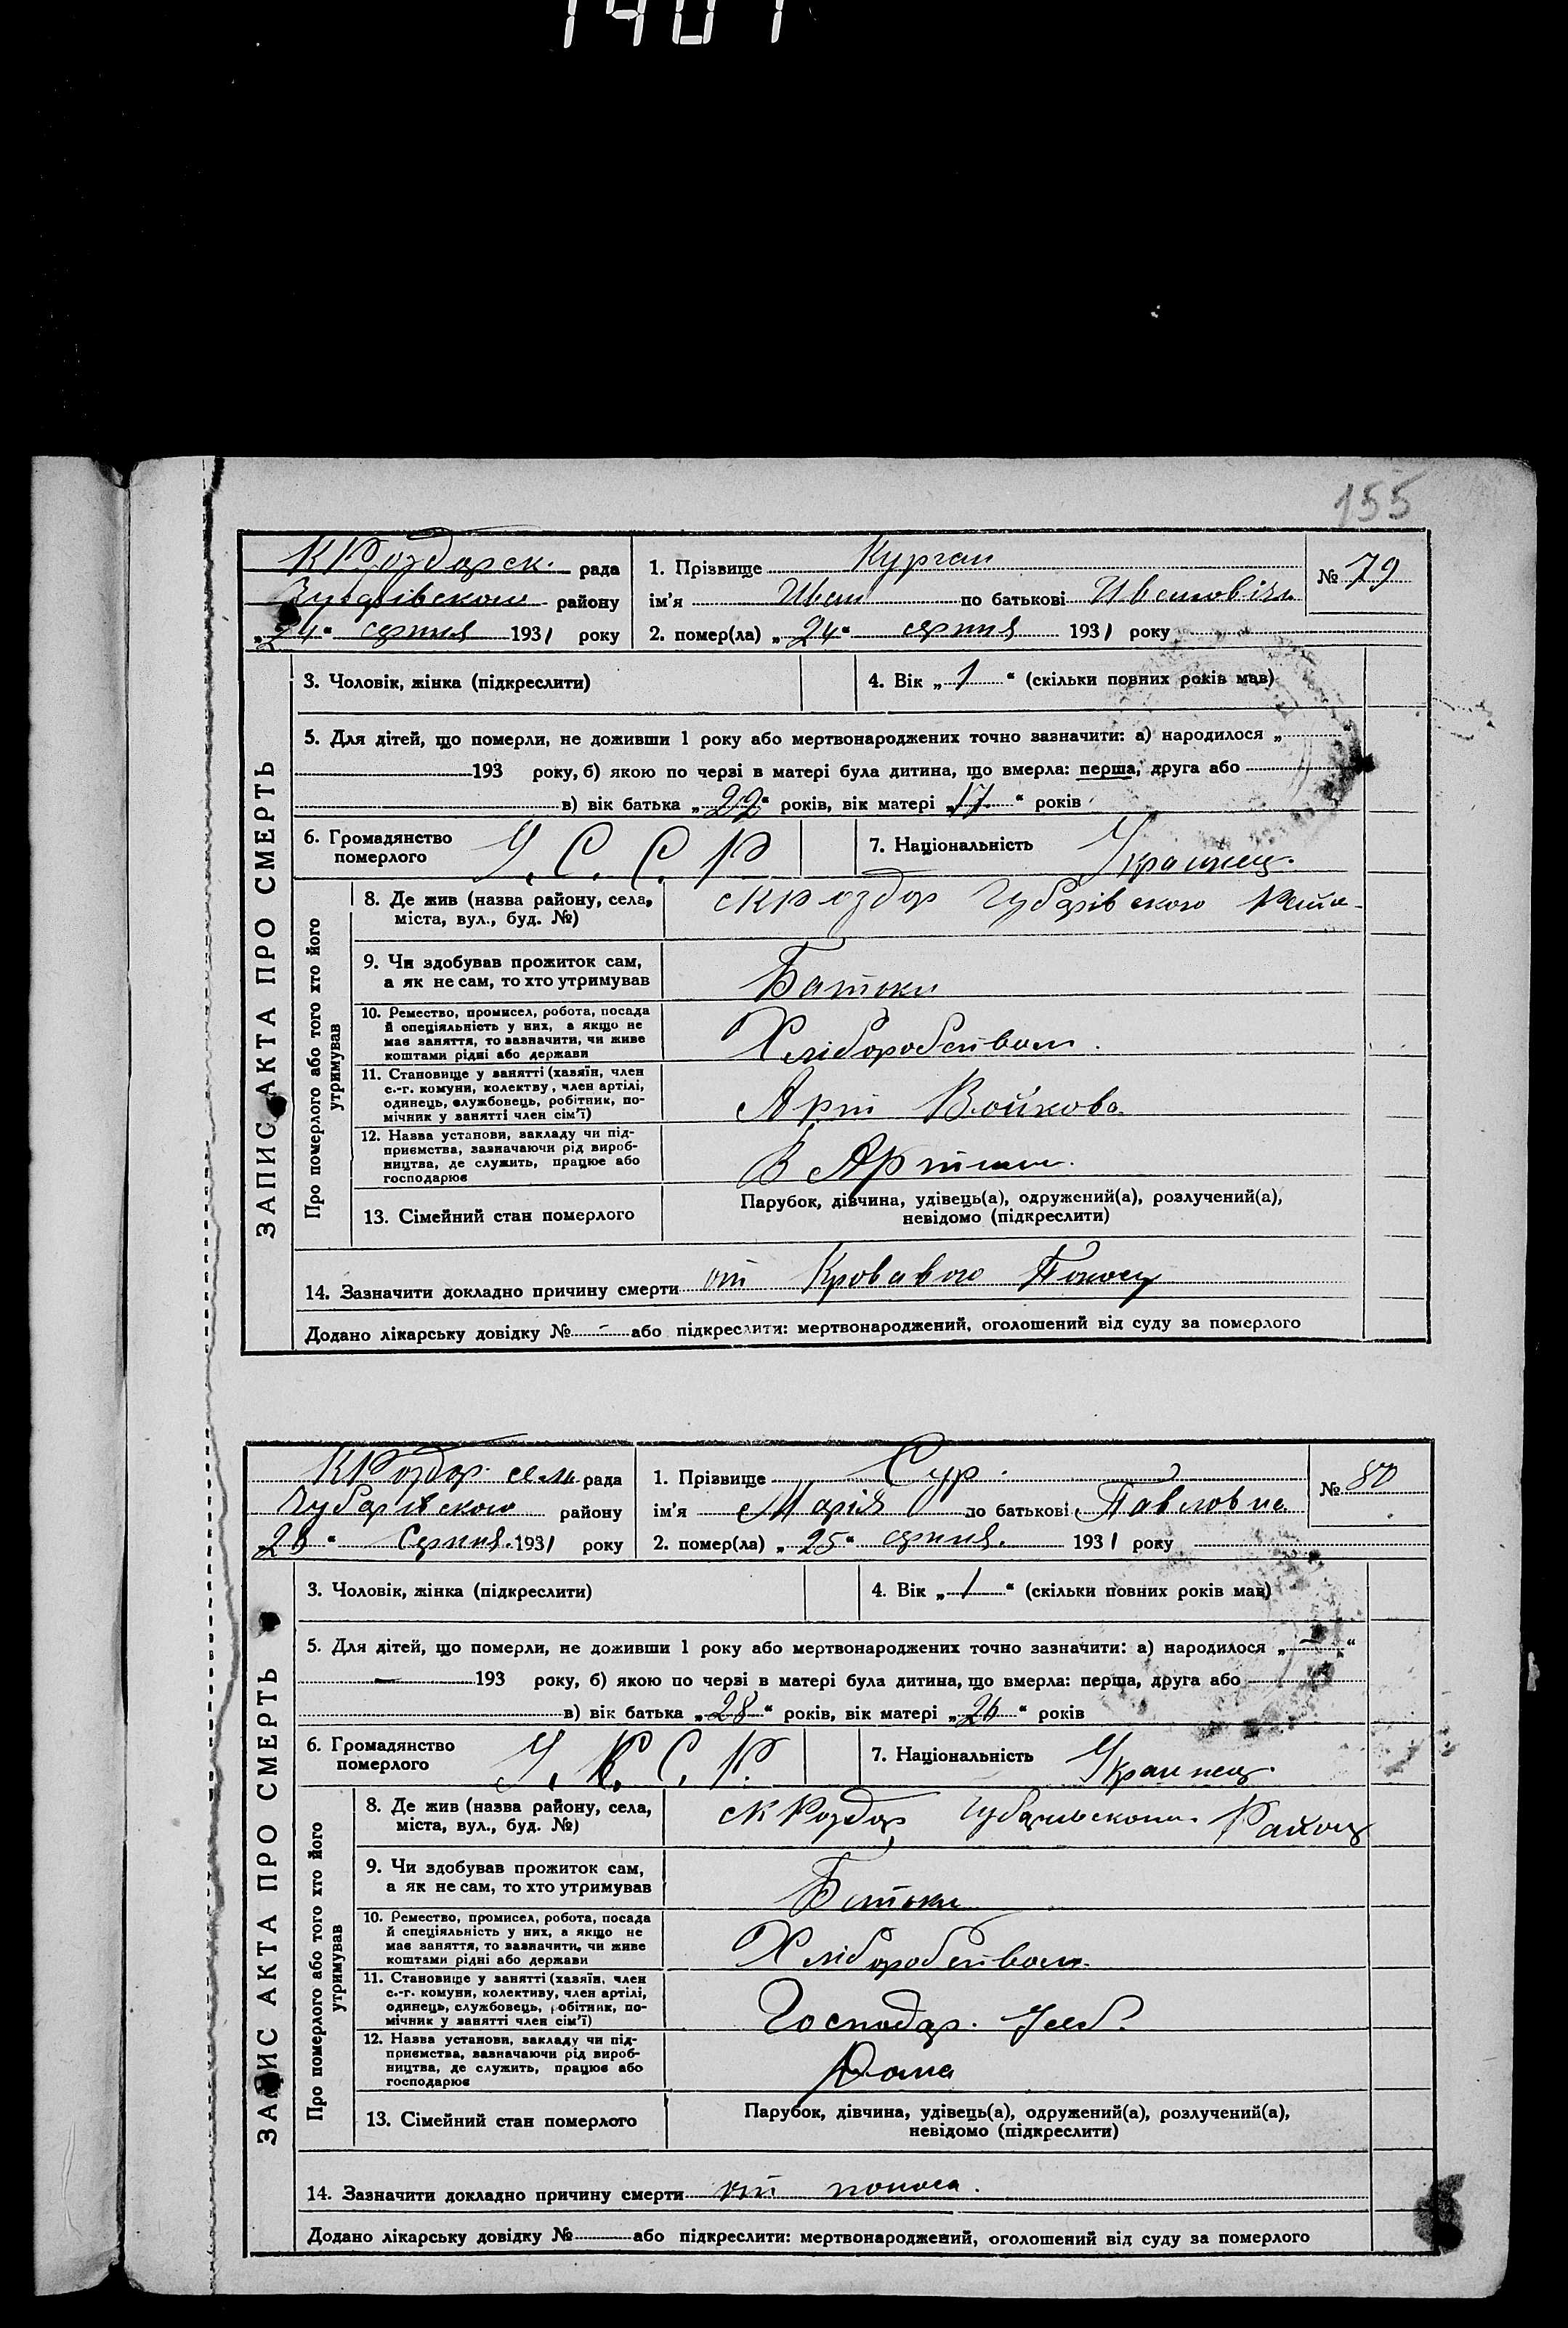 1401
155
К Роздорск. рада
1. Прізвище Курган
№ 79
району
ім'я Иван по батькові Ивановіч
„24“ серпня 1931 року
2. помер(ла) „24“ серпня 1931 року
ЗАПИС АКТА ПРО СМЕРТЬ
3. Чоловік, жінка (підкреслити)
4. Вік „1“ (скільки повних років мав)
5. Для дітей, що померли, не доживши 1 року або мертвонароджених точно зазначити: а) народилося „ “
193 року, б) якою по черзі в матері була дитина, що вмерла: перша, друга або
в) вік батька „22“ років, вік матері „17“ років
6. Громадянство
померлого
У. С. С. Р
7. Національність Украинец.
Про померлого або того хто його
утримував
8. Де жив (назва району, села,
міста, вул., буд. №)
с К Роздор Чубарівского
9. Чи здобував прожиток сам,
а як не сам, то хто утримував
Батоки
10. Ремество, промисел, робота, посада
й спеціяльність у них, а якщо не
має заняття, то зазначити, чи живе
коштами рідні або держави
Хліборобством.
11. Становище у занятті (хазяїн, член
с.-г. комуни, колективу, член артілі,
одинець, службовець, робітник, по-
мічник у занятті член сім'ї)
Арт Войкова
12. Назва установи, закладу чи під-
приємства, зазначаючи рід вироб-
ництва, де служить, працює або
господарює
В Артили.
13. Сімейний стан померлого
Парубок, дівчина, удівець(а), одружений(а), розлучений(а),
невідомо (підкреслити)
14. Зазначити докладно причину смерти от Кровавого Поносу
Додано лікарську довідку № - або підкреслити: мертвонароджений, оголошений від суду за померлого
К Роздор сель рада
1. Прізвище Сур.
№ 80
Чубарівского району
ім'я Марія по батькові Павловна
Серпня 1931 року
2. помер(ла) „25“ серпня. 1931 року
ЗАПИС АКТА ПРО СМЕРТЬ
3. Чоловік, жінка (підкреслити)
4. Вік „1“ (скільки повних років мав)
5. Для дітей, що померли, не доживши 1 року або мертвонароджених точно зазначити: а) народилося „—“
— 193 року, б) якою по черзі в матері була дитина, що вмерла: перша, друга або
в) вік батька „28“ років, вік матері „26“ років
6. Громадянство
померлого
У. С. С. Р.
7. Національність Украинец.
Про померлого або того хто його
утримував
8. Де жив (назва району, села,
міста, вул., буд. №)
с К Роздор Району
9. Чи здобував прожиток сам,
а як не сам, то хто утримував
Батоки
10. Ремество, промисел, робота, посада
й спеціяльність у них, а якщо не
має заняття, то зазначити, чи живе
коштами рідні або держави
Хліборобством.
11. Становище у занятті (хазяїн, член
с.-г. комуни, колективу, член артілі,
одинець, службовець, робітник, по-
мічник у занятті член сім'ї)
Господар.
12. Назва установи, закладу чи під-
приємства, зазначаючи рід вироб-
ництва, де служить, працює або
господарює
Дома
13. Сімейний стан померлого
Парубок, дівчина, удівець(а), одружений(а), розлучений(а),
невідомо (підкреслити)
14. Зазначити докладно причину смерти от поноса.
Додано лікарську довідку № або підкреслити: мертвонароджений, оголошений від суду за померлого